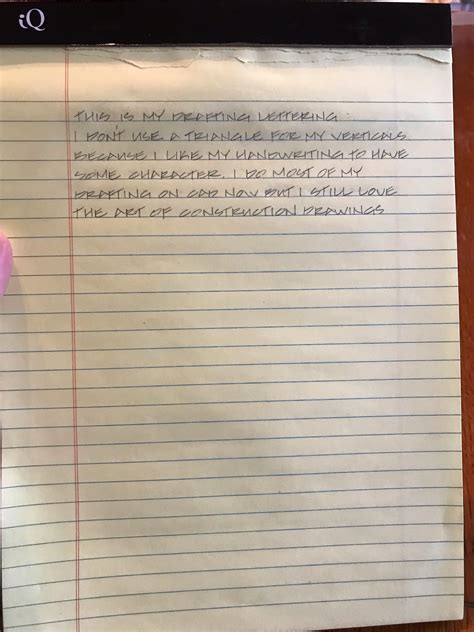 iQ
THIS IS MY DRAFTING LETTERING :
I DON'T USE A TRIANGLE FOR MY VERTICALS
BECAUSE I LIKE MY HANDWRITING TO HAVE
SOME CHARACTER. I DO MOST OF MY
DRAFTING ON CAD NOW BUT I STILL LOVE
THE ART OF CONSTRUCTION DRAWINGS